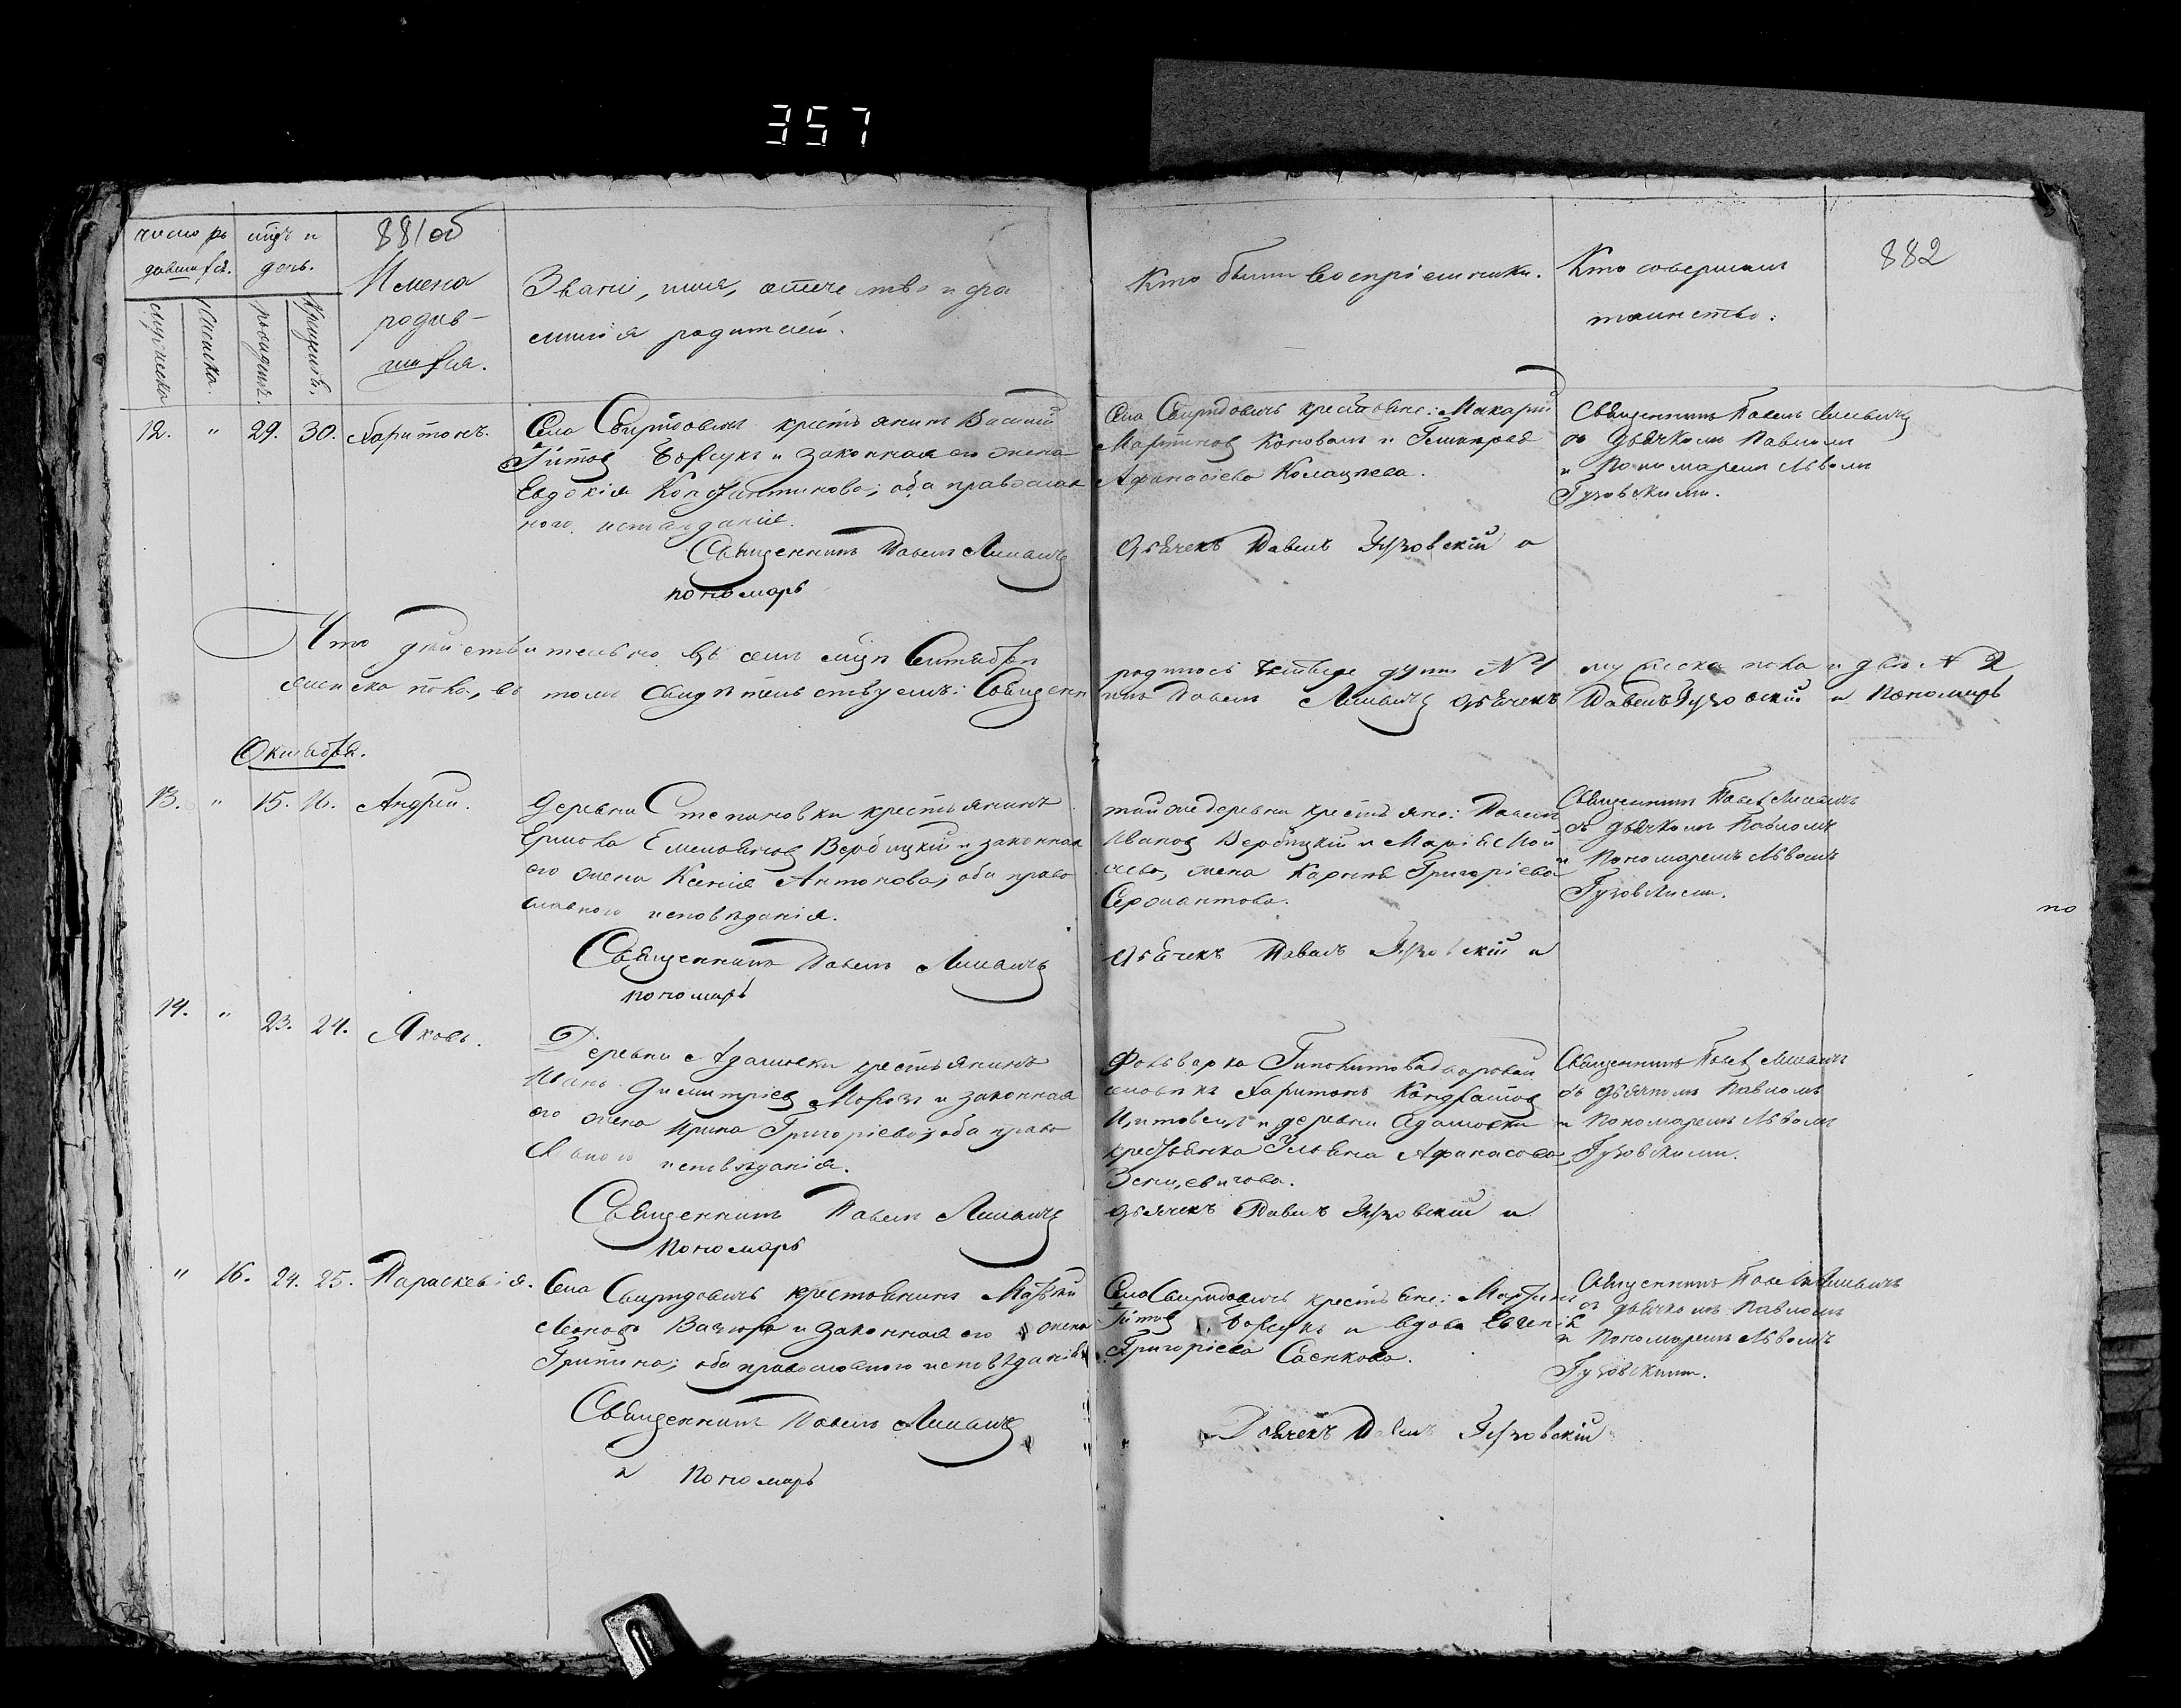 357
число ро
дившихся.
мцъ и
день.
881об
Имена
родив-
шихся.
мужеска
женска.
рожденія.
крещенія.
Званіе, имя, отечество и фа
милія родителей.
Кто были воспріемники.
Кто совершалъ
таинство.
882
12. " 29. 30. Харитонъ.
Села Свиридовичъ крестьянинъ Василій
Титов Борсукъ и законная его жена
Евдокія Константинова; оба православ
ного исповѣданія.
Священникъ Павелъ
пономарь
Села Свиридовичъ крестьяне: Макарій
Мартинов Коновалъ и
Афанасіева
Дьячекъ Павелъ Гузовскій и
Священникъ Павелъ
съ дьячкомъ Павломъ
и Пономаремъ Львомъ
Гузовскими.
Что дѣйствительно въ семъ мцѣ Сентябрѣ родилось четыре души № 1 мужеска пола и два № 2
женска пола, въ томъ свидѣтельствуемъ: Священникъ Павелъ Дьячекъ Павелъ Гузовскій и Пономарь
Октября.
13. " 15. 16. Андрей.
Деревни Степановки крестьянинъ
Ермола Емельянов Вербицкій и законная
его жена Ксенія Антонова; оба право
славного исповѣданія.
Священникъ Павелъ
пономарь
той же деревни крестьяне: Павелъ
Иванов Вербицкій и Марія Мои
сеева, жена Григоріева
Сержантова.
Дьячекъ Павелъ Гузовскій и
Священникъ Павел
съ дьячкомъ Павломъ
и Пономаремъ Львомъ
Гузовскими.
по
14. " 23. 24. Яковъ.
Деревни Адамовки крестьянинъ
Иванъ Димитріев Морозъ и законная
его жена Ирина Григоріева; оба право
славного исповѣданія.
Священникъ Павелъ
Пономарь
Фольварка
Харитонъ Кондратов
и деревни Адамовки
крестьянка Ульяна Афанасова
Дьячекъ Павелъ Гузовскій и
Священникъ Павел
съ дьячкомъ Павломъ
и Пономаремъ Львомъ
Гузовскими.
" 16. 24. 25. Параскевія.
Села Свиридовичъ крестьянинъ Матвѣй
Леонов и законная его жена
оба православного исповѣданія
Священникъ Павелъ
и Пономарь
Села Свиридовичъ крестьяне: Мартинъ
Титов Борсукъ и вдова Евгенія
Григоріева Саенкова.
Дьячекъ Павелъ Гузовскій
Священникъ Павел
съ дьячкомъ Павломъ
и Пономаремъ Львомъ
Гузовскими.